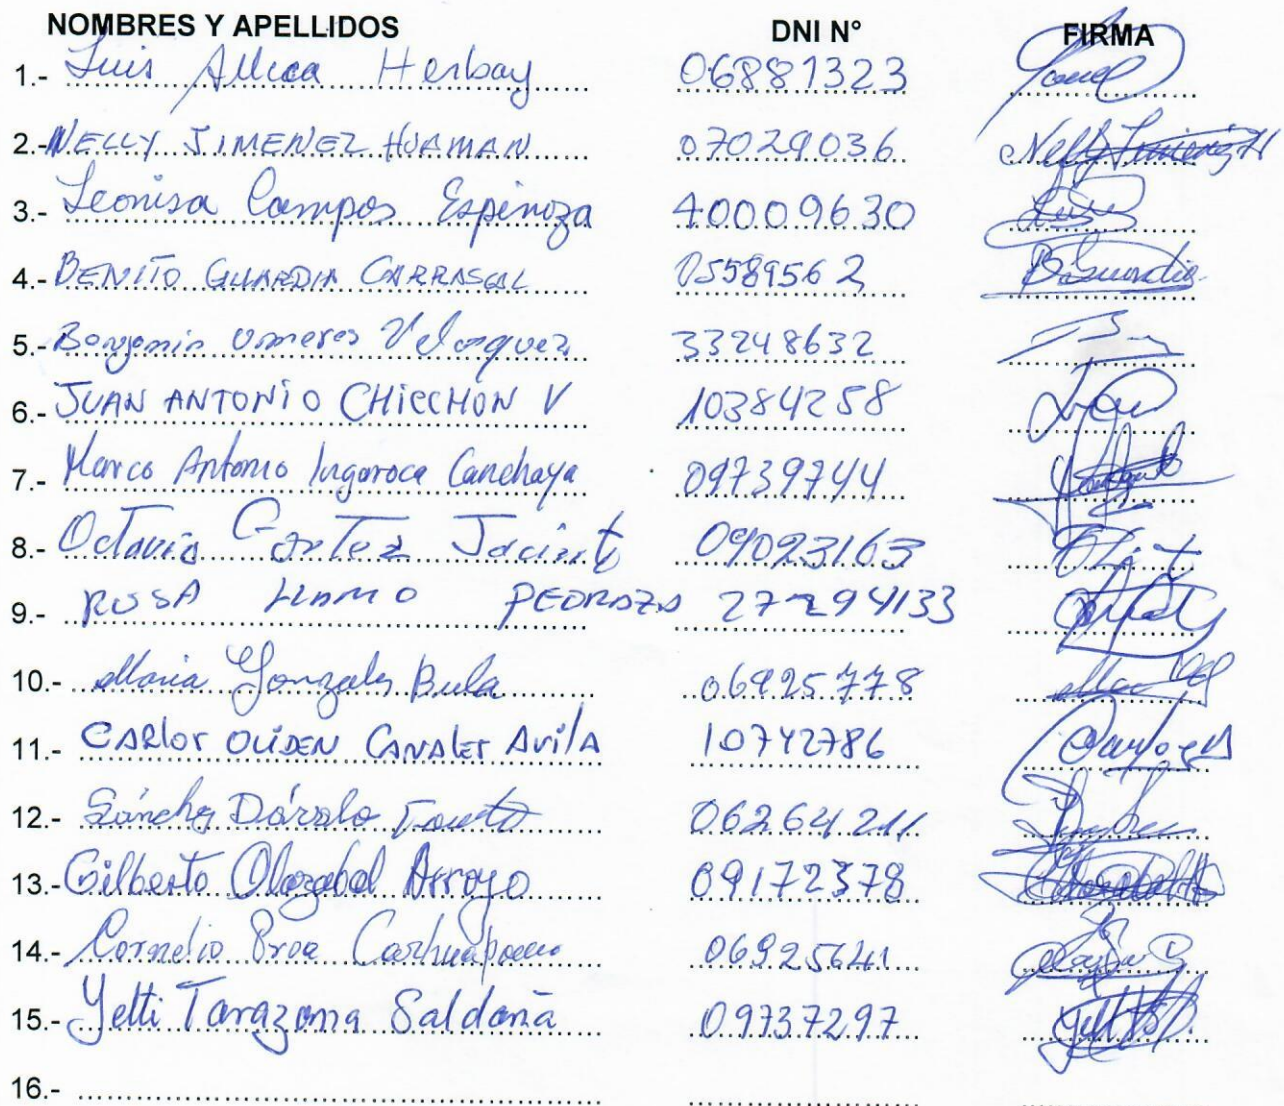 NOMBRES Y APELLIDOS DNI N° FIRMA
1.- Luis Allcca Herbay 06881323
2.- NELLY JIMENEZ HUAMAN 07029036 Nelly Jimenez H
3.- Leonisa Campos Espinoza 40009630
4.- BENITO GUARDIA CARRASCAL 05589562 B Guardia
5.- Velasquez 33248632
6.- JUAN ANTONIO CHICCHON V 10384258
7.- Marco Antonio Ingaroca Canchaya 09739744
8.- Octavio Cortez Jacinto 09023163
9.- ROSA LLAMO PEDRAZA 27294133
10.- Maria Gonzales Bula 06925778
11.- CARlos OLIDEN CANALES AvilA 10742786
12.- Sánchez Dávalo 06264211
13.- Gilberto Olazabal Arroyo 09172378
14.- Cornelio Proa Carhuapoma 06925641
15.- Yetti Tarazona Saldaña 09737297
16.-